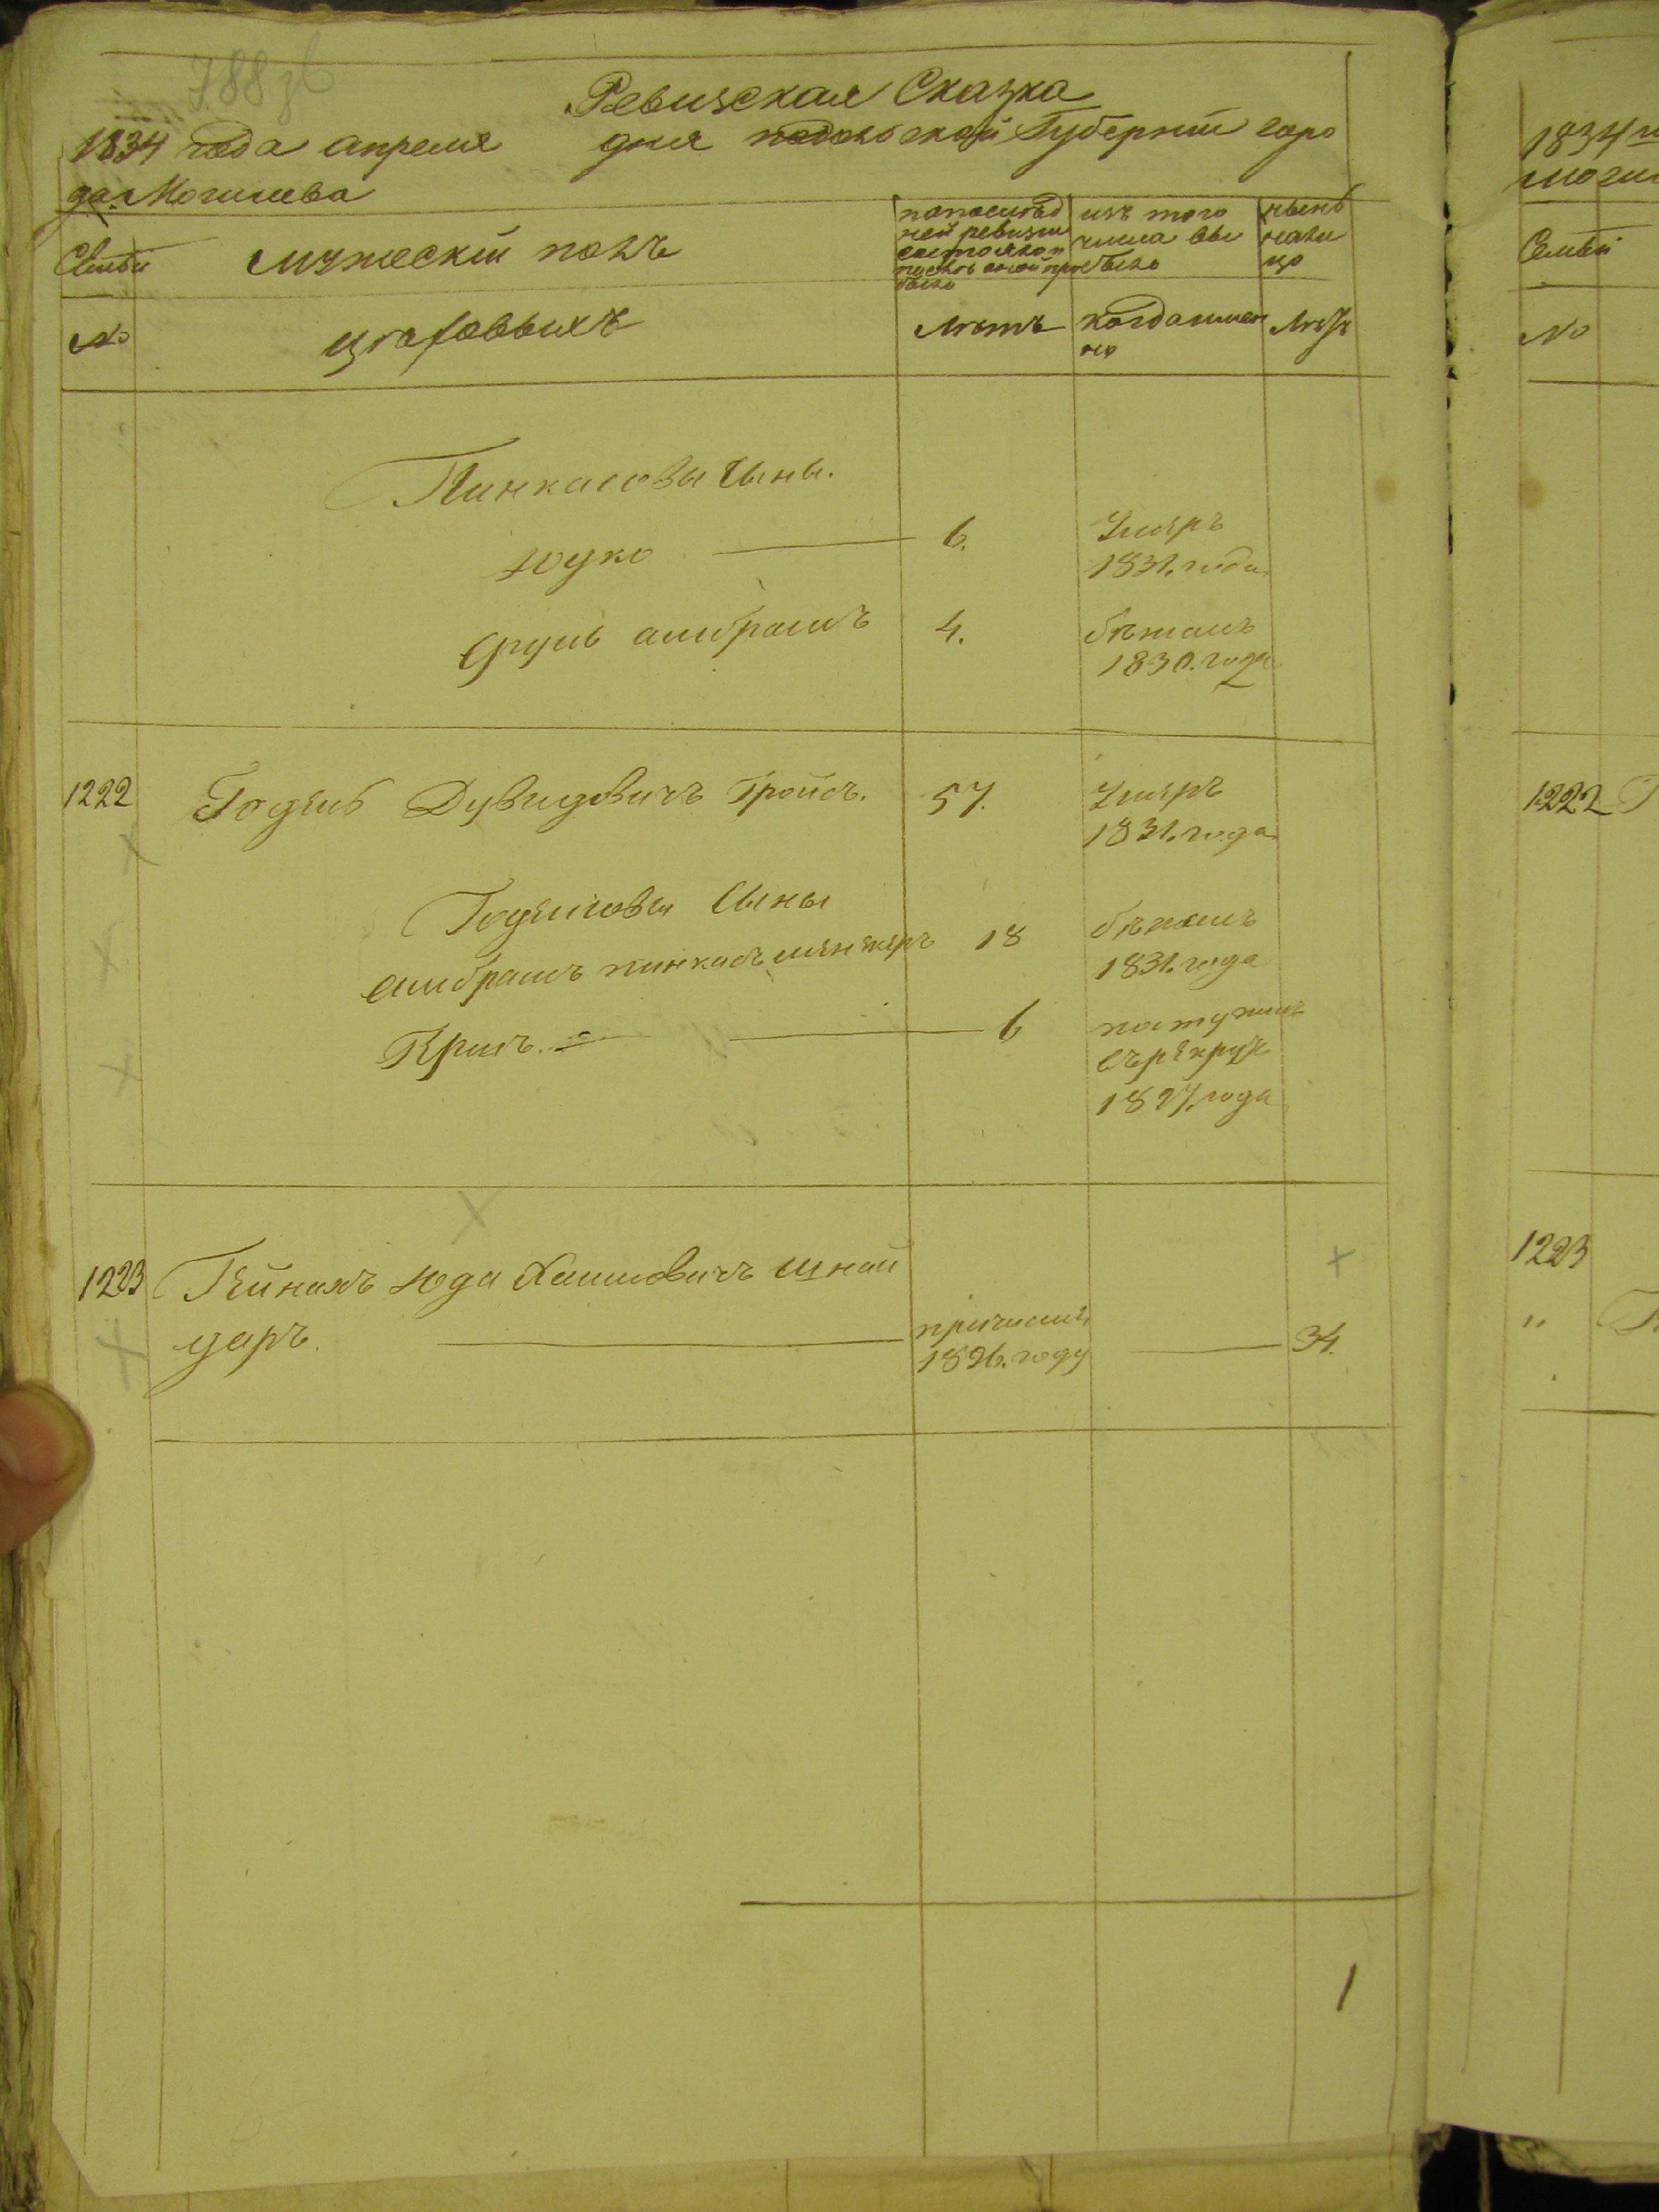 788 зб
Ревизская Сказка
1834 года апреля дня подольской Губернии горо
да Могилева
Семьи
мужеский полъ
попослед
ней ревизии
состояло и
после оной при
было
изъ того
числа вы
было
нынѣ
нали
цо
№
цеховыхъ
Лѣтъ
когда имен
но
Лѣтъ
Пинкасовы Сыны.
Юуко 6. Умеръ
1831. года
Сруль амбрамъ 4. бѣжалъ
1830. года
1222 Годель Дувидовичъ Гройсъ. 57. Умеръ
1831. года
Годелиовы Сыны
амбрамъ пинкасъ 18 бѣжалъ
1831. года
6 поступилъ
въ рекрут
1827. года
1223 Хаимовичъ Шнай
даръ. причислен
1826. году 34.
1
1834
Могил
Семьи
№
1222 Г
1223
"